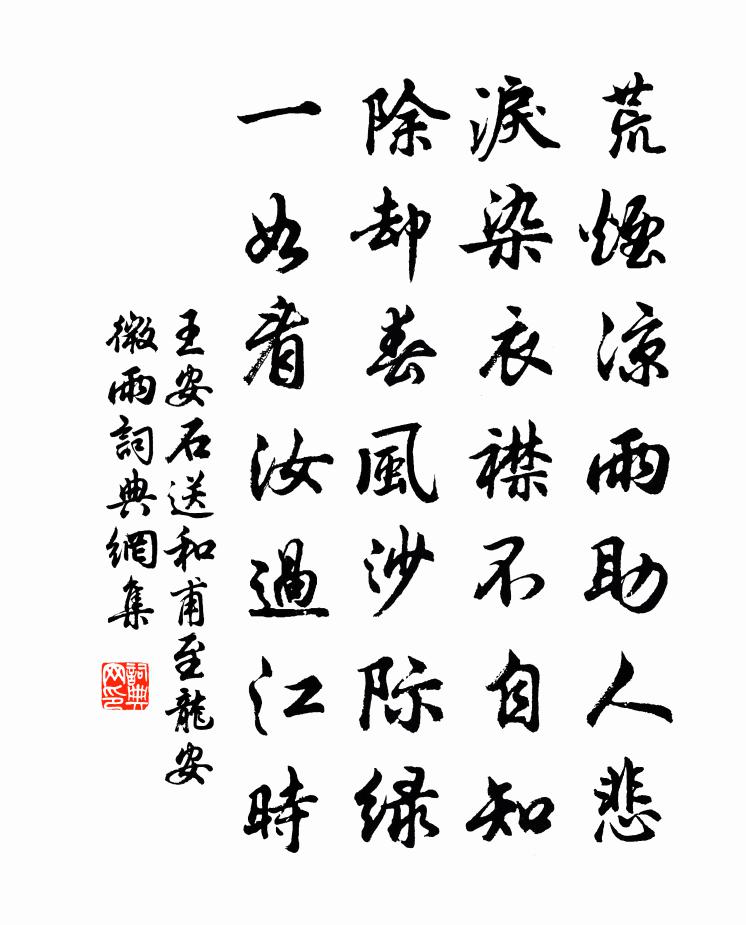 荒煙涼雨助人悲
淚染衣襟不自知
除却春風沙际绿
一如看汝過江時
王安石送和甫至龍安
微雨詞典網集
詞典網印